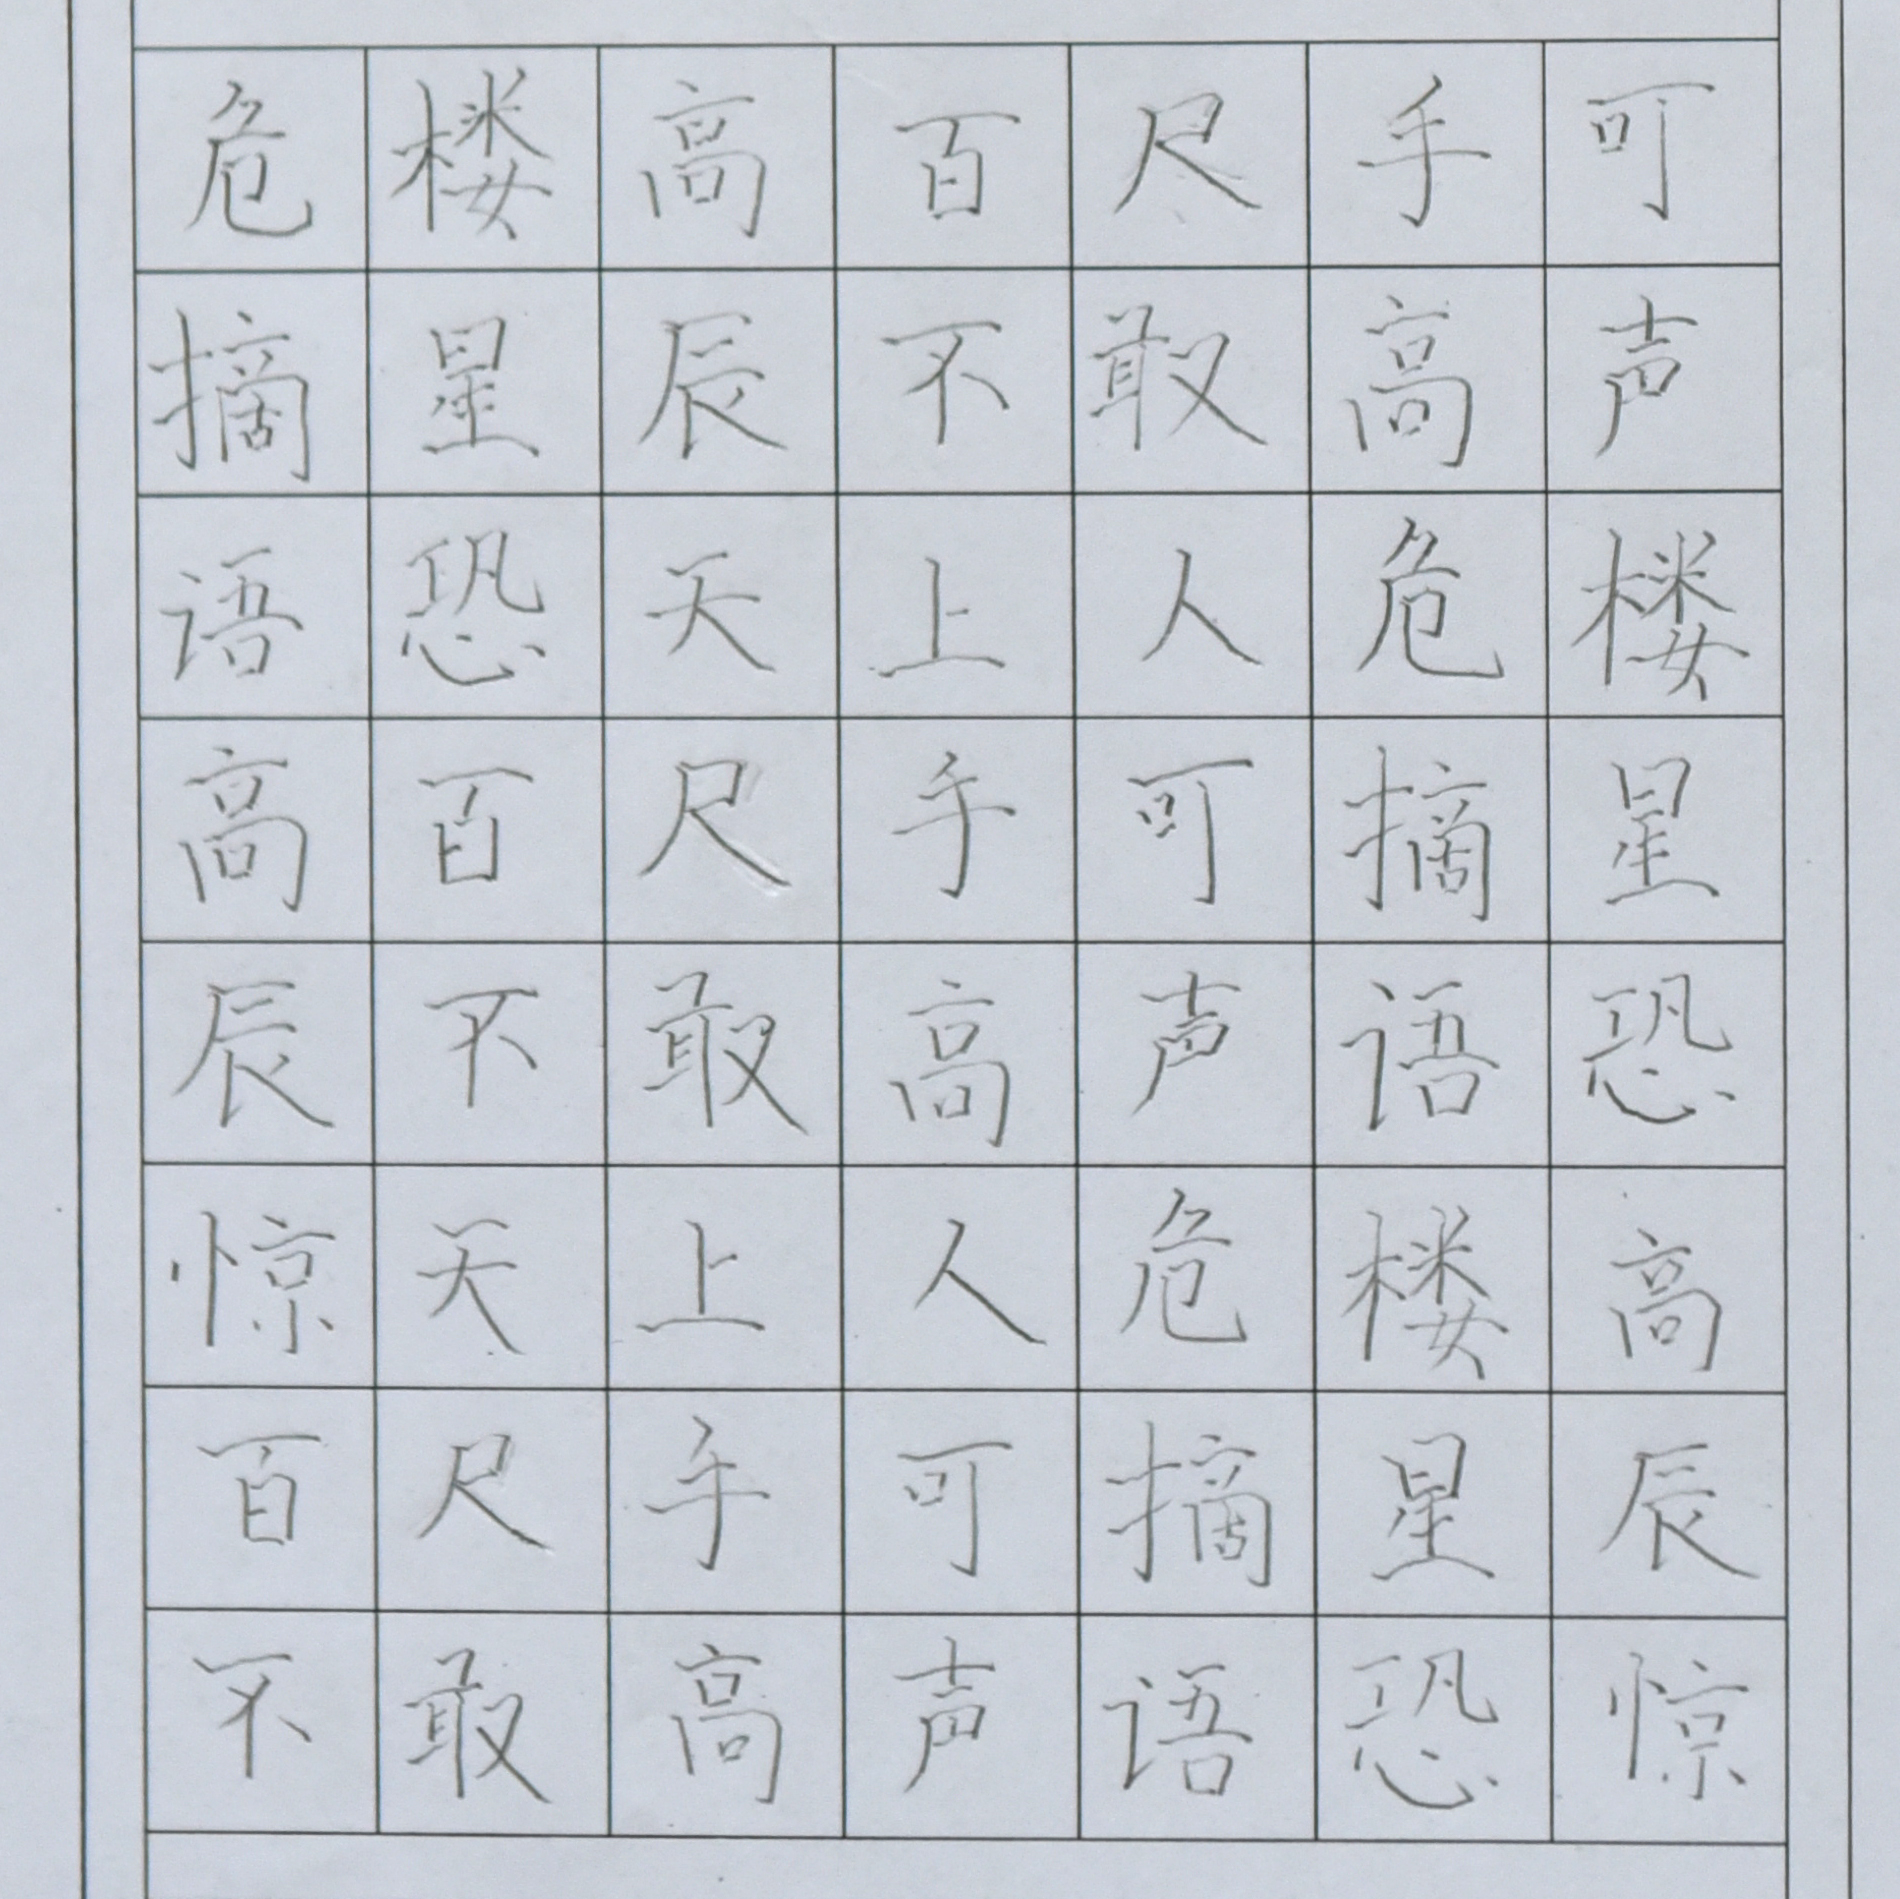 危楼高百尺手可
摘星辰不敢高声
语恐天上人危楼
高百尺手可摘星
辰不敢高声语恐
惊天上人危楼高
百尺手可摘星辰
不敢高声语恐惊